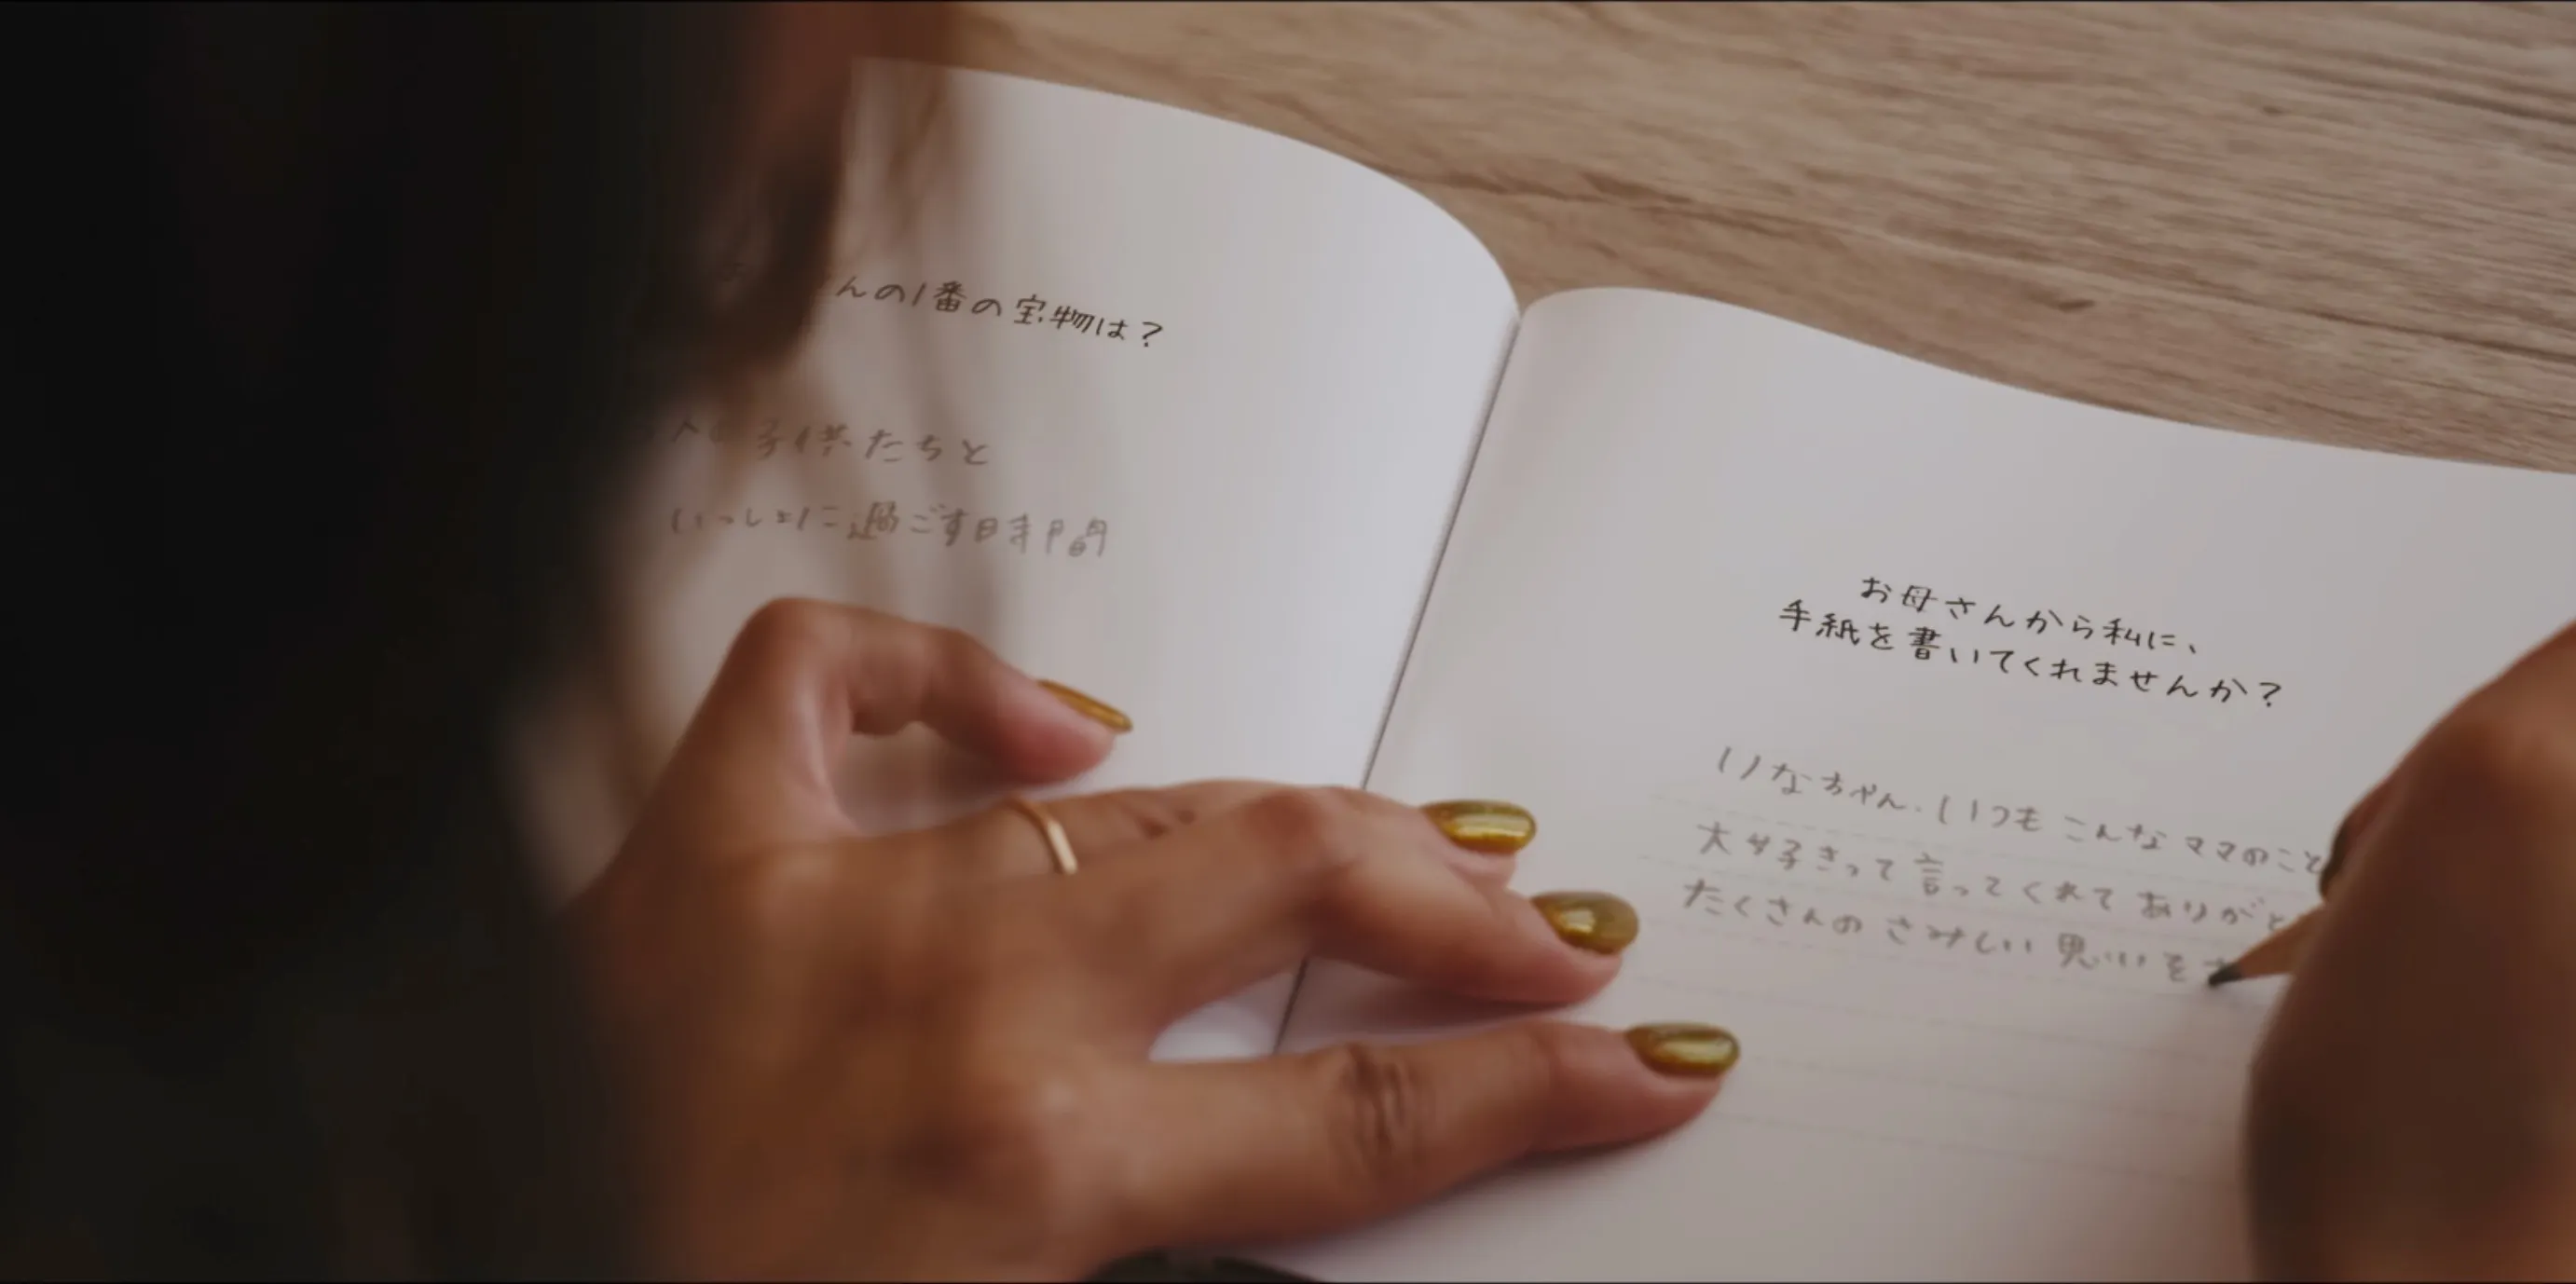 んの1番の宝物は？
子供たちと
いっしょに過ごす時間
お母さんから私に、
手紙を書いてくれませんか？
りなちゃん.いつも こんな ママのこと
大好きって言ってくれて ありがと
たくさんの さみしい 思いを さ